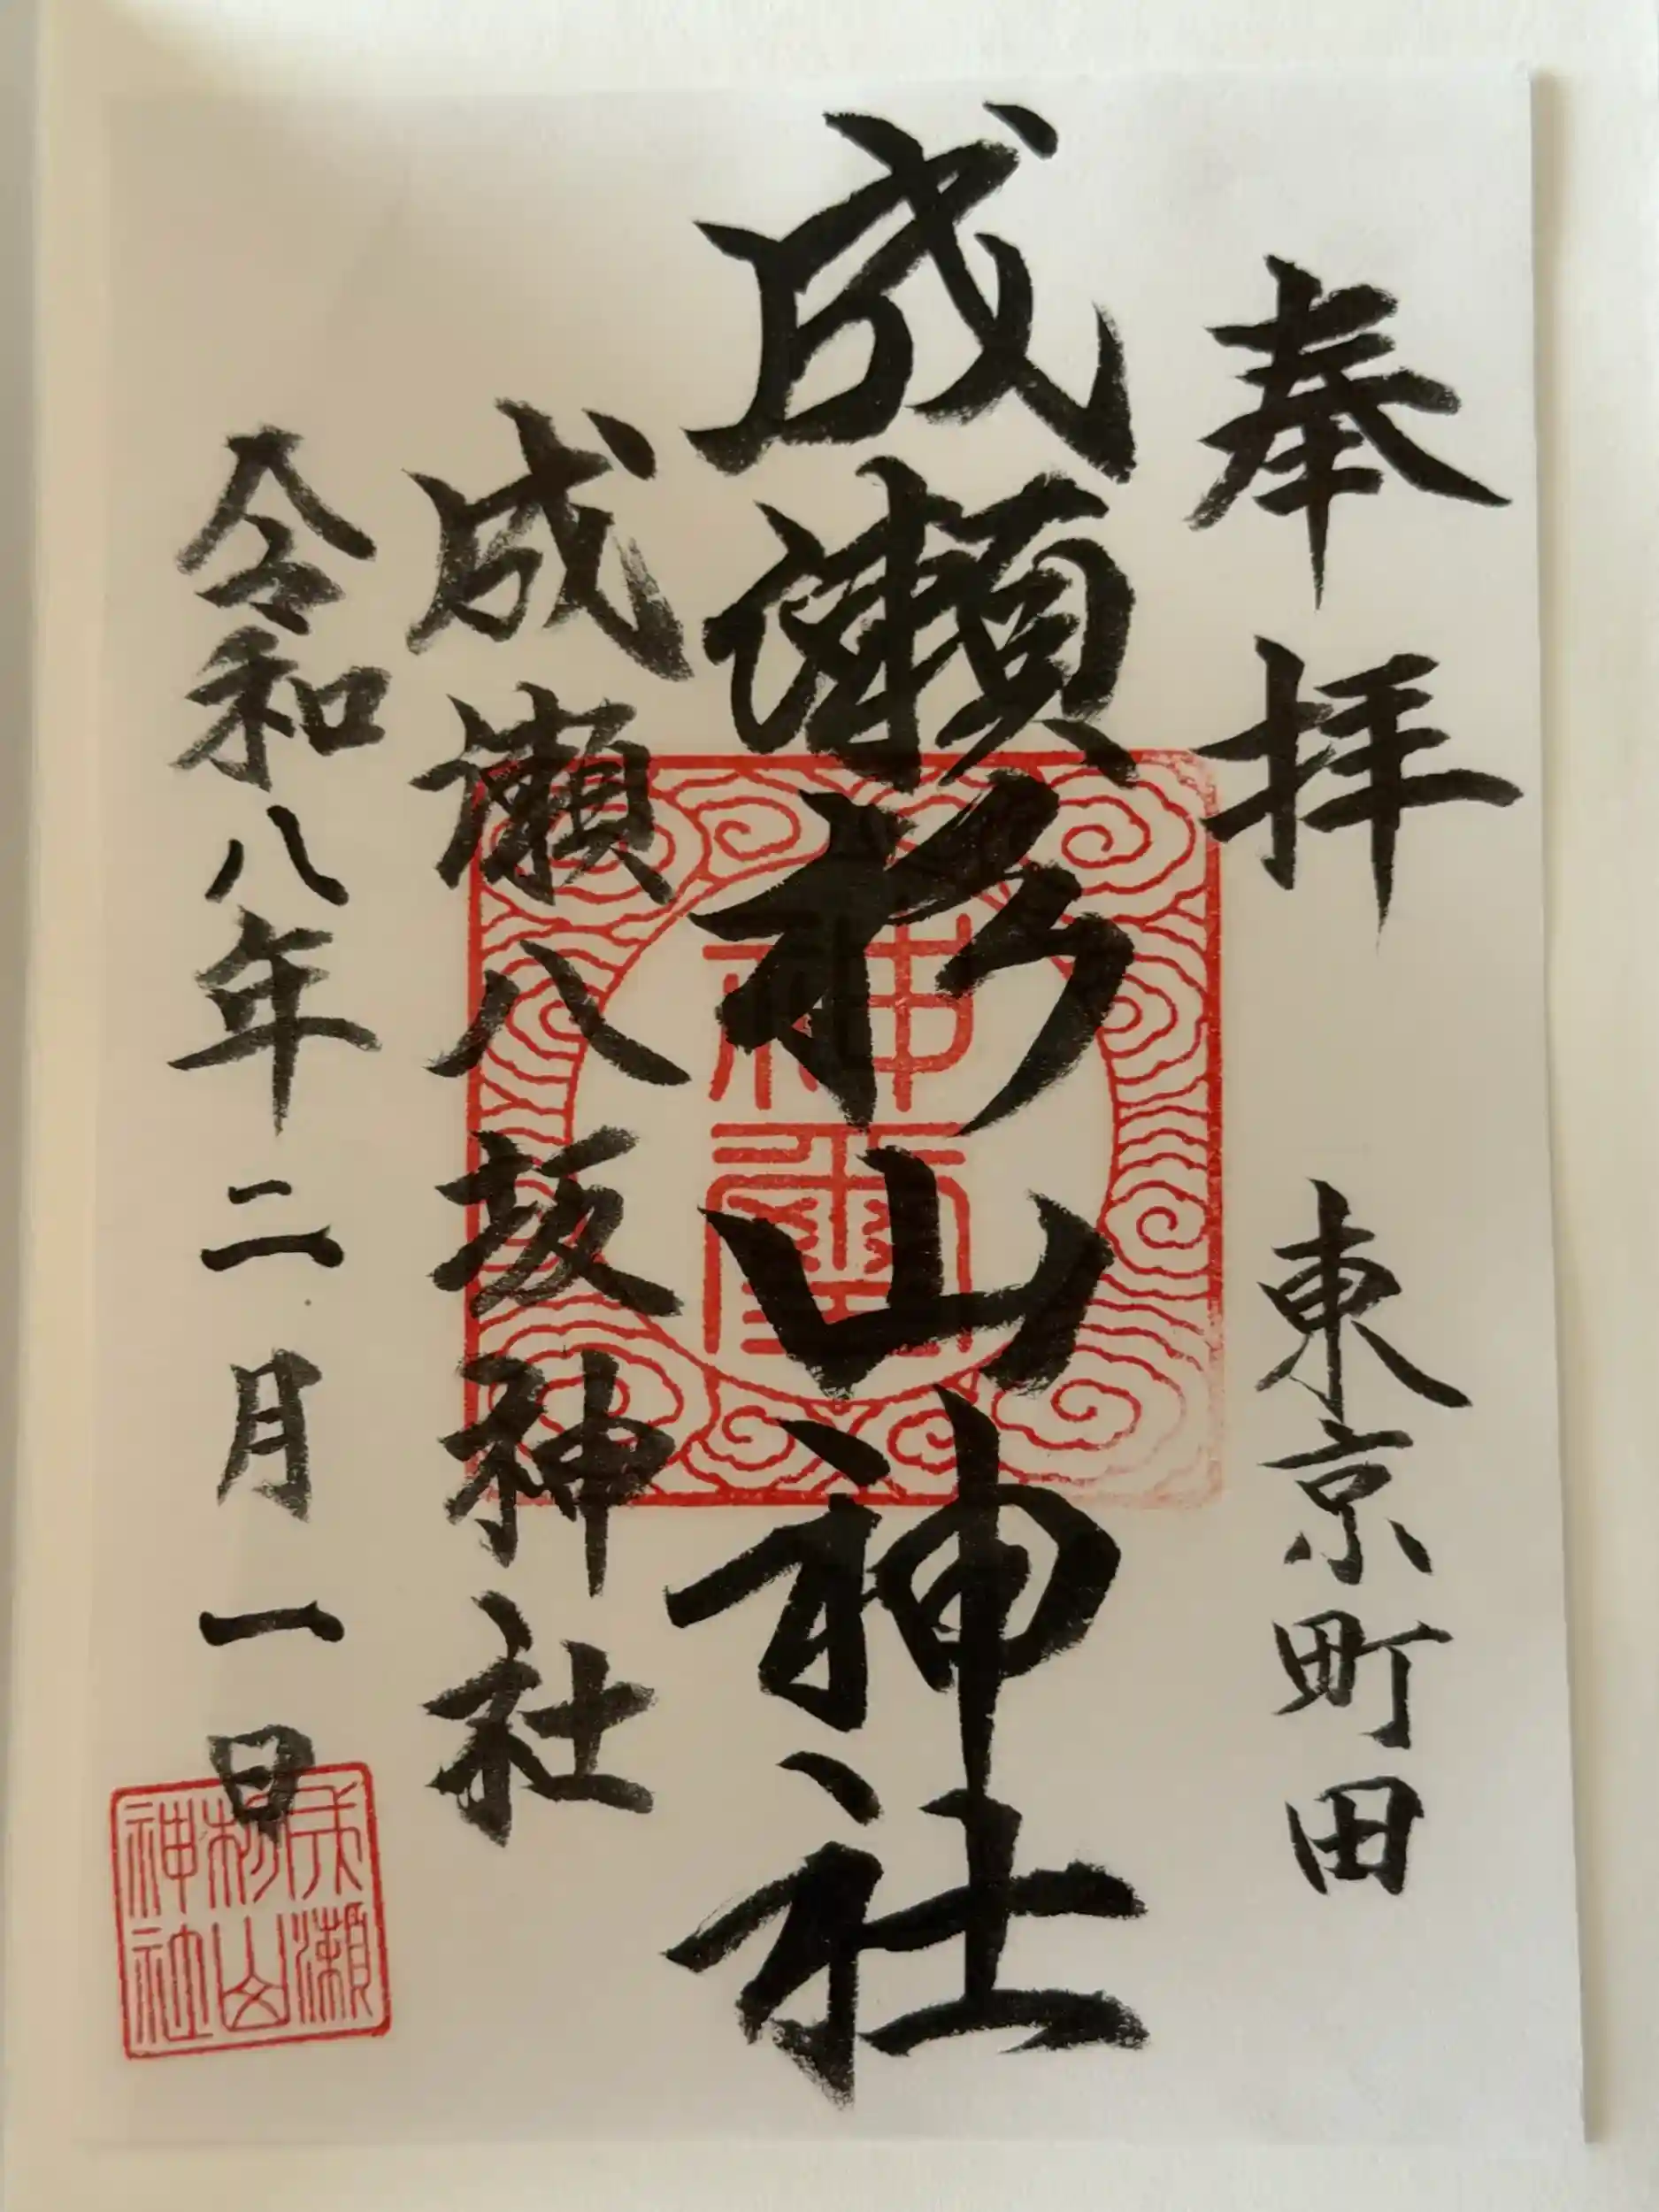 奉拝 東京町田
成瀬杉山神社
成瀬八坂神社
令和八年二月一日
神璽
成瀬
杉山
神社